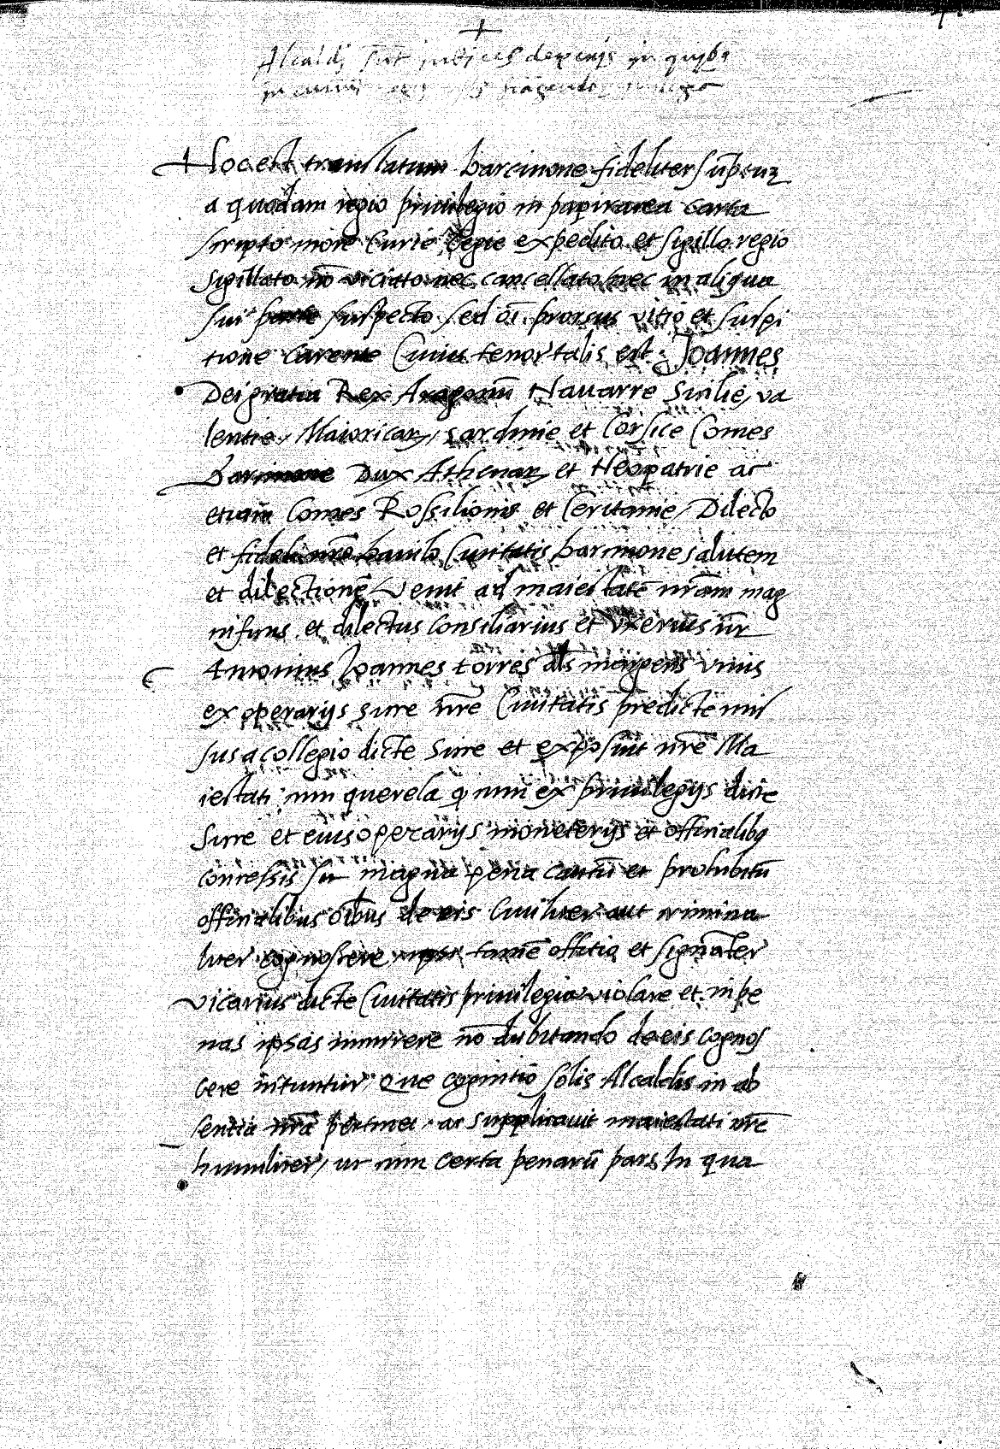 +
Alcaldi sūt judices de penis in quibꝯ
Hoc est translatum barcinone fideliter sūptuꝫ
a quodam regio privilegio in papiracea carta
scripto more Curie Regie expedito et sigillo regio
sigillato nō viciato nec cancellato nec in aliqua
sui parte suspecto sed oī prorsus vitio et suspi
tione carente Cuius tenor talis est. Joannes
Dei gratia Rex Aragonū Navarre Sicilie, va
lentie, Maioricaꝝ, sardinie et Corsice Comes
Barcinone Dux Athenaꝝ et Neopatrie ac
etiam Comes Rossilionis et Ceritanie, Dilecto
et fideli nrō baiulo Civitatis barcinone salutem
et dilectionē Venit ad maiestatē nrām mag
nificus et dilectus Consiliarius et Uxerius nr̄
Antonius Joannes torres als marpens unus
ex operarijs sicce nrē Civitatis predicte mis
sus a collegio dicte Sicce et exposuit nrē Ma
iestati cum querela q̄ cum ex privilegijs dicte
Sicce et eius operarijs moneterijs et officialibꝯ
concessis su magna pena cautū et prohibitū
officialibus oībus de eis Civiliter aut crimina
liter cognoscere tamē officia et signāter
vicarius dicte Civitatis privilegia violare et in pe
nas ipsas incurrere nō dubitando de eis cognos
cere nituntur, Que cognitio solis Alcaldis in ab
sentia nrā pertinet, ac supplicavit maiestati nrē
humiliter, ut cum certa penarū pars In qua